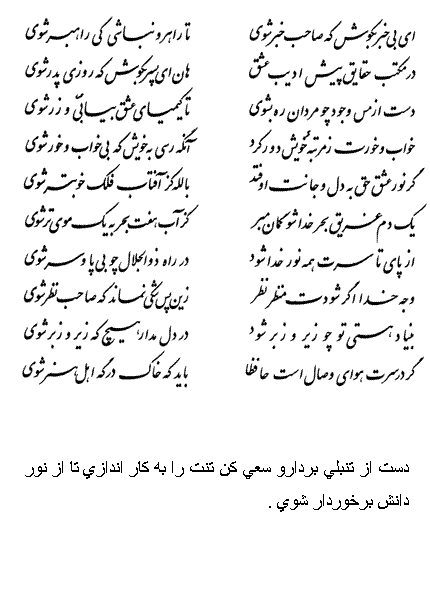 ای بی خبر بکوش که صاحب خبر شوی تا راهرو نباشی کی راهبر شوی
در مکتب حقایق پیش ادیب عشق هان ای پسر بکوش که روزی پدر شوی
دست از مس وجود چو مردان ره بشوی تا کیمیای عشق بیابیّ و زر شوی
خواب و خورت ز مرتبهٔ خویش دور کرد آنگه رسی به خویش که بی خواب و خور شوی
گر نور عشق حق به دل و جانت اوفتد بالله کز آفتاب فلک خوبتر شوی
یک دم غریق بحر خدا شو گمان مبر کز آب هفت بحر به یک موی تر شوی
از پای تا سرت همه نور خدا شود در راه ذوالجلال چو بی پا و سر شوی
وجه خدا اگر شودت منظر نظر زین پس شکی نماند که صاحب نظر شوی
بنیاد هستی تو چو زیر و زبر شود در دل مدار هیچ که زیر و زبر شوی
گر در سرت هوای وصال است حافظا باید که خاک درگه اهل هنر شوی
دست از تنبلي بردارو سعي كن تنت را به كار اندازي تا از نور
دانش برخوردار شوي .